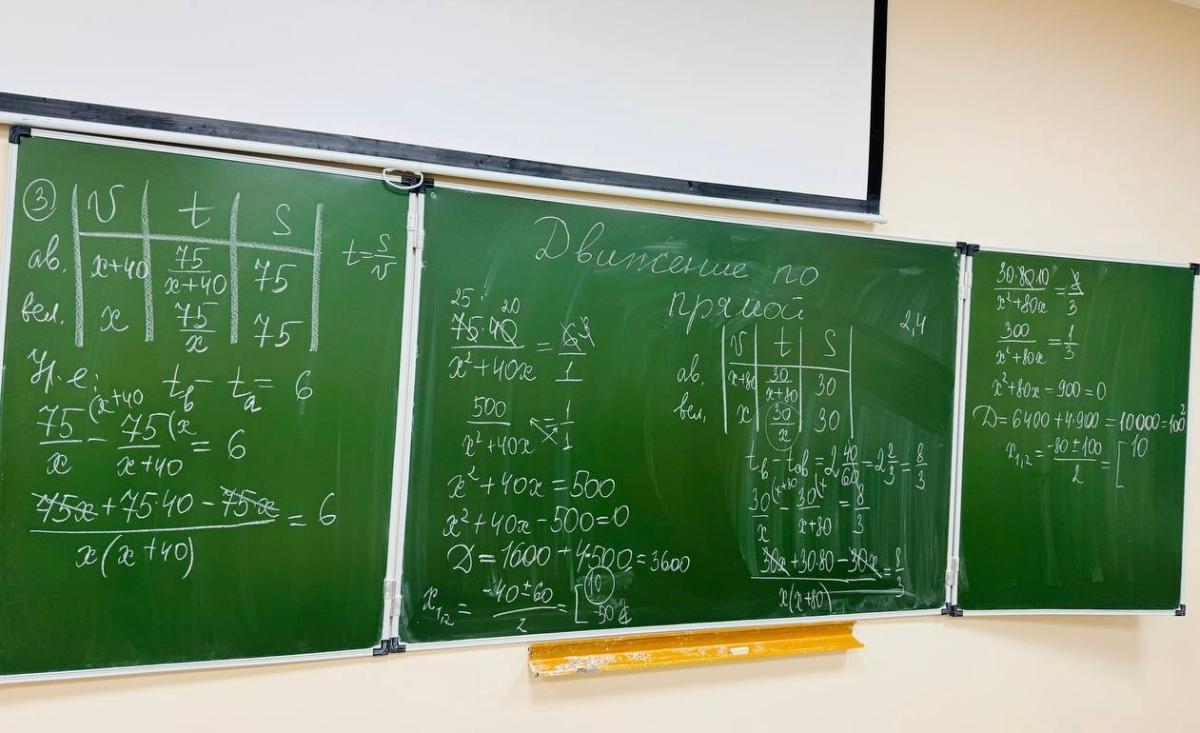 ③ V t S
ав. x+40 75/(x+40) 75 t=S/V
вел. x 75/x 75
Ур-е: t_в - t_а = 6
75/x (x+40 - 75/(x+40) (x = 6
(75x+75·40-75x)/(x(x+40)) = 6
Движение по
прямой
25 20
75·40/(x²+40x) = 6/1
500/(x²+40x) = 1/1
x²+40x=500
x²+40x-500=0
D=1600+4·500=3600
x₁,₂ = (-40±60)/2 = [10
-50
2,4
V t S
ав. x+80 30/(x+80) 30
вел. x 30/x 30
t_в - t_ав = 2 40/60 = 2 2/3 = 8/3
30/x (x+80 - 30/(x+80) (x = 8/3
(30x+30·80-30x)/(x(x+80)) = 8/3
30·80 10/(x²+80x) = 8/3
300/(x²+80x) = 1/3
x²+80x-900=0
D=6400+4·900=10000=100²
x₁,₂ = (-80±100)/2 = [10